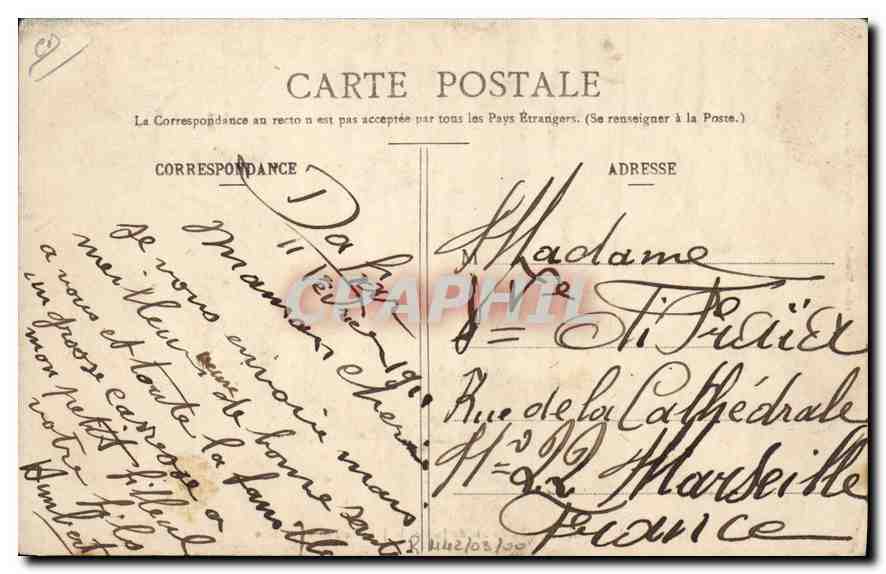 CARTE POSTALE
La Correspondance au recto n est pas acceptée par tous les Pays Étrangers. (Se renseigner à la Poste.)
CORRESPONDANCE
11 Février 191
Maman cherie
Je vous envoie mais
meilleur de bonne santé
et toute la famille
a vous
un grosse caresse a
mon petit filleul
votre fils
Humbert
ADRESSE
Madame
Vve
Rue de la Cathédrale
No 22 Marseille
France
CPAPHIL
R 442/03/00